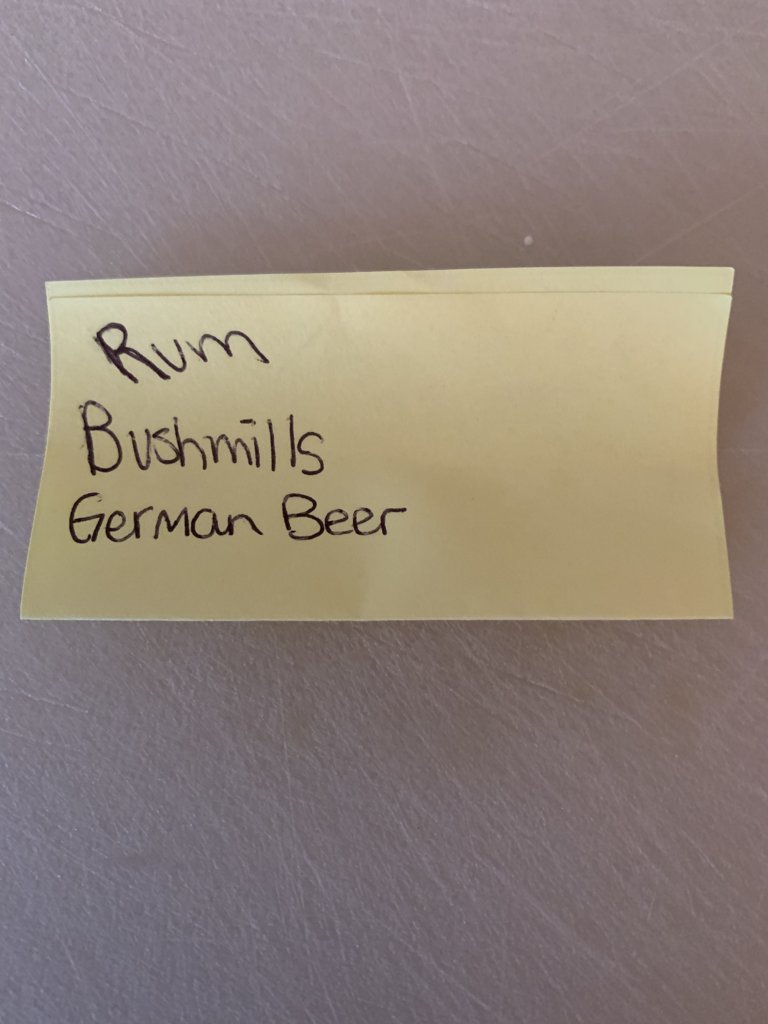 Rum
Bushmills
German Beer